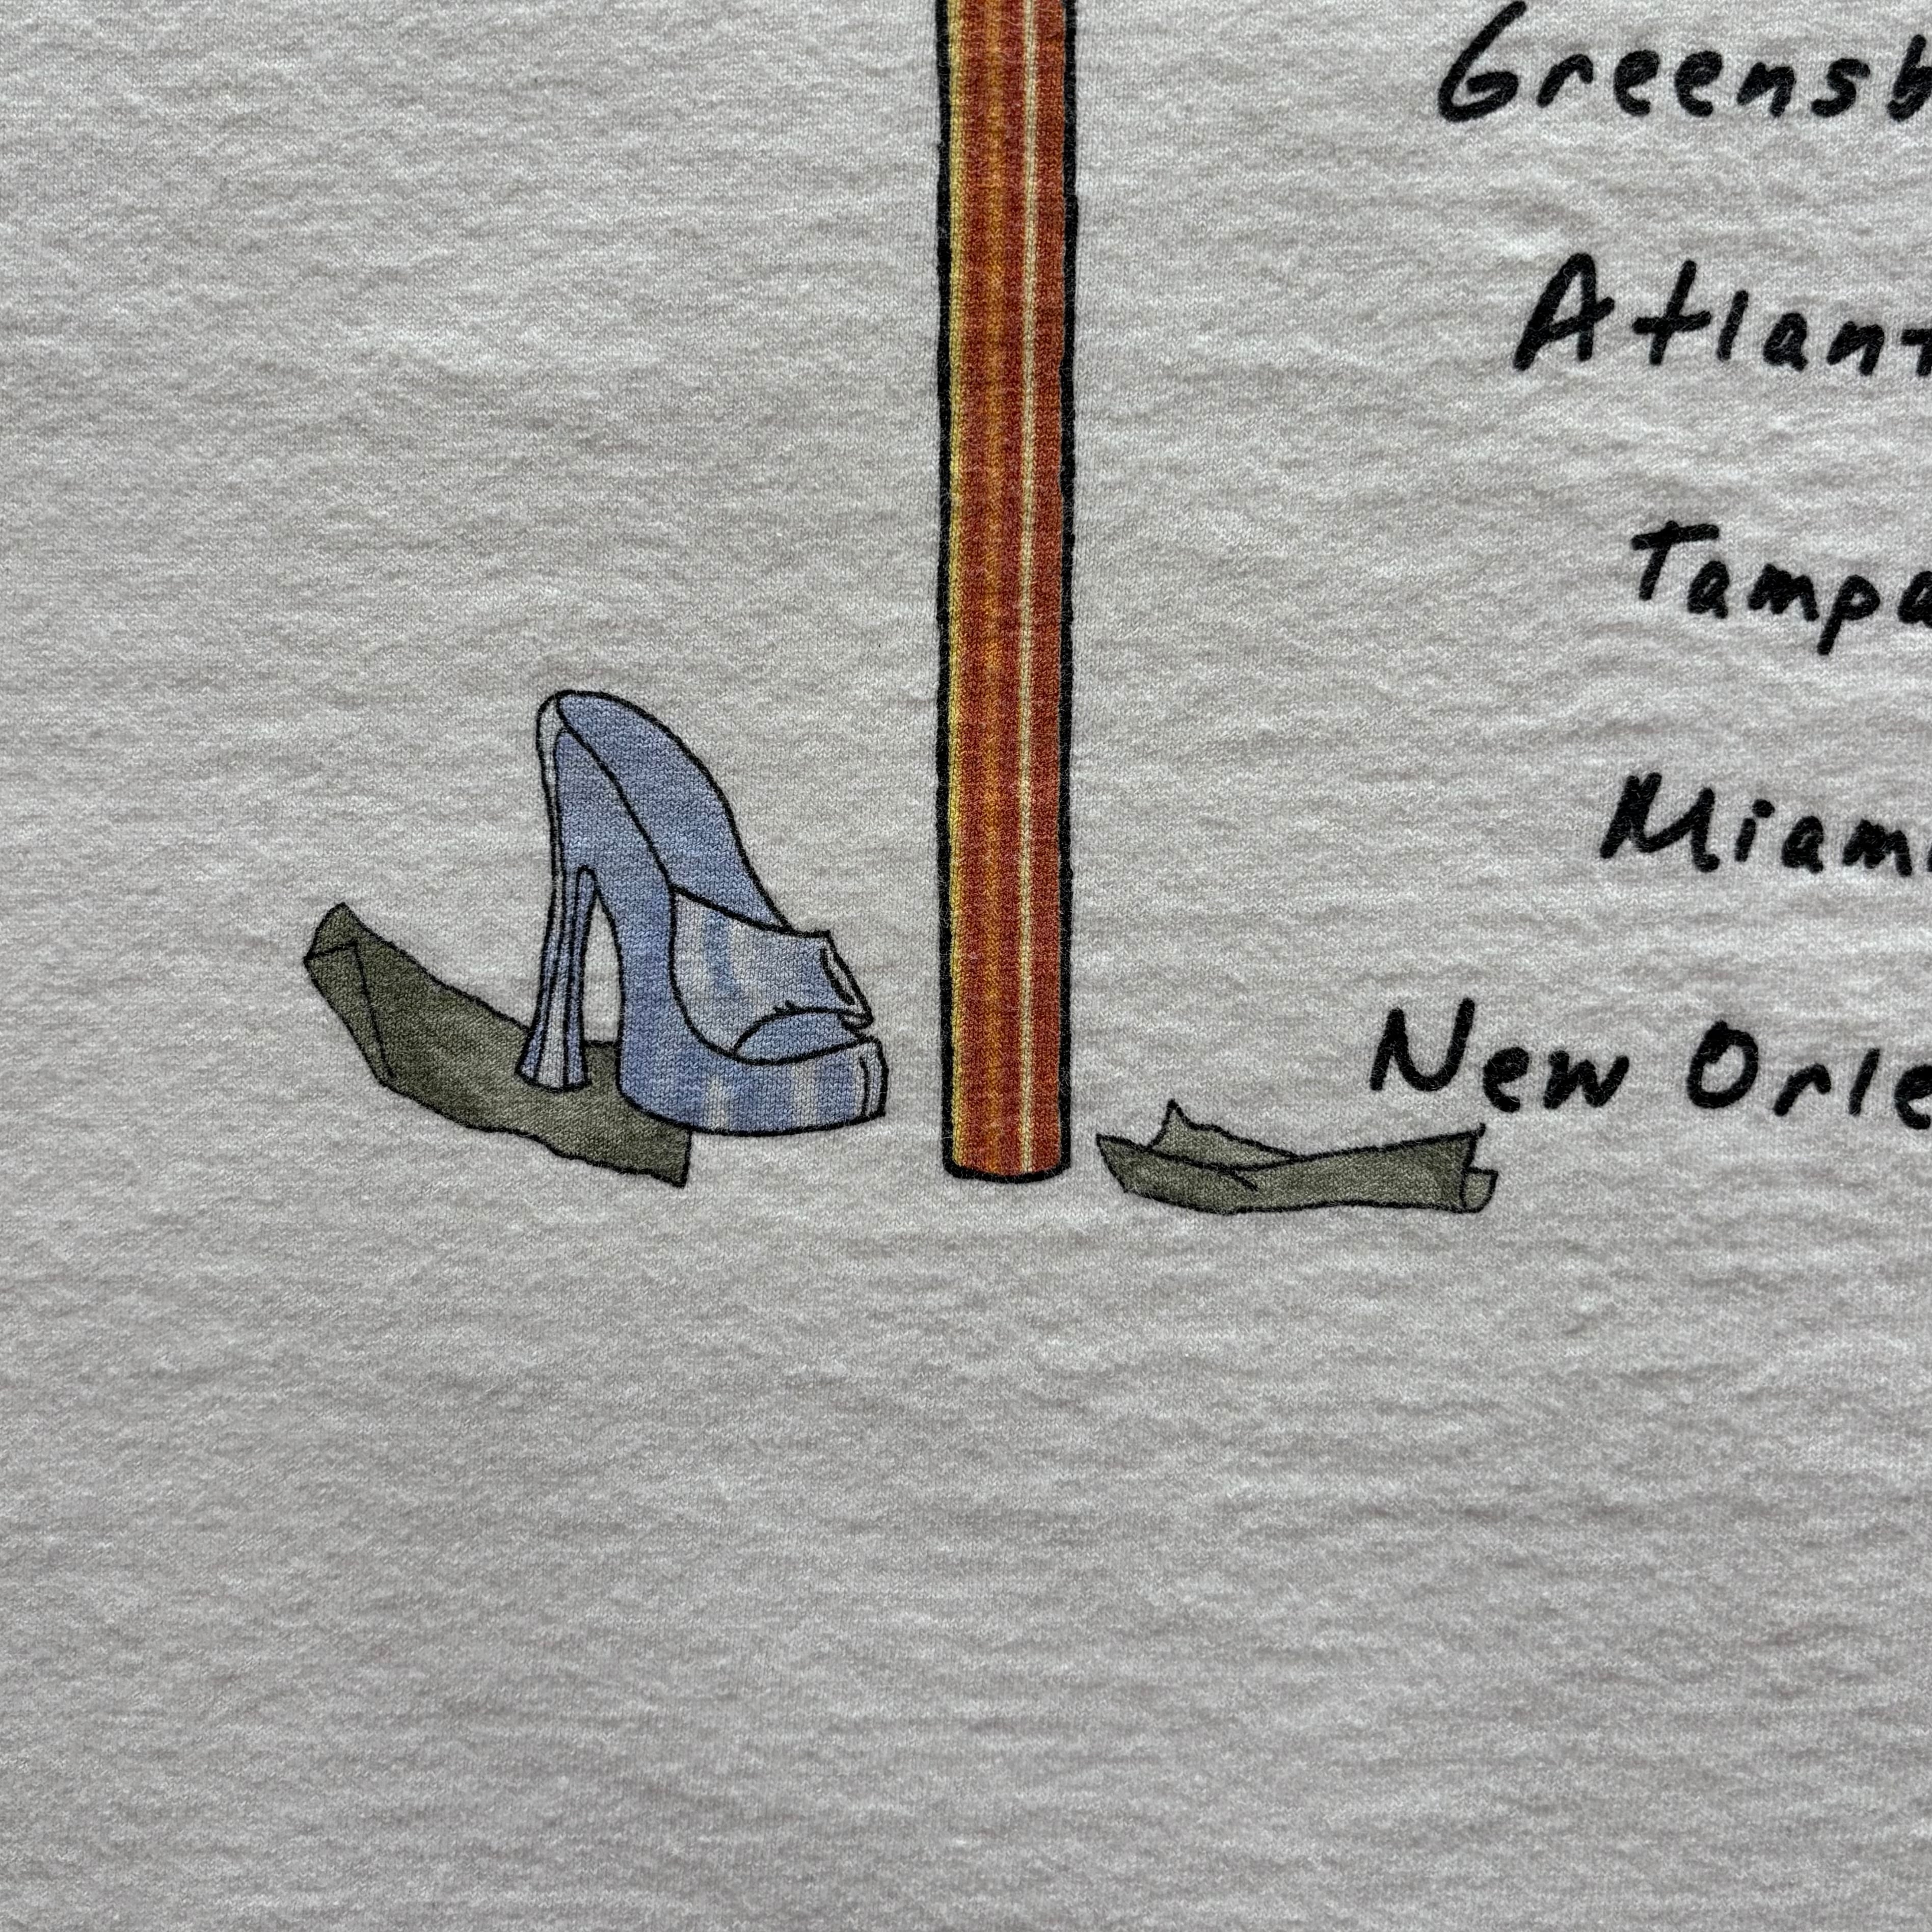 Greensb
Atlant
Tampa
Miami
New Orle